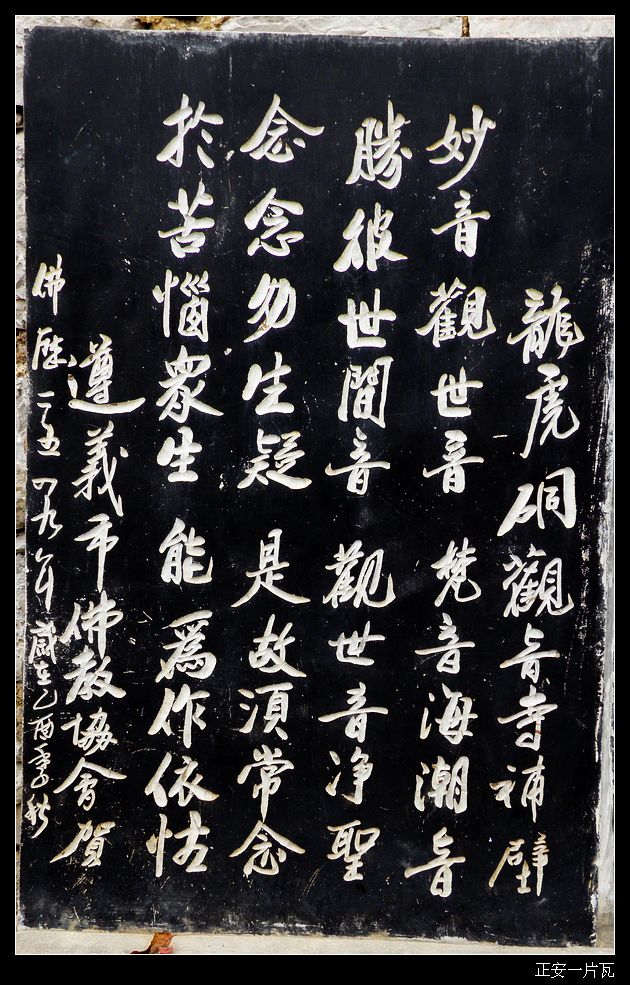 龍虎硐觀音寺補壁
妙音觀世音 梵音海潮音
勝彼世間音 觀世音净聖
念念勿生疑 是故須常念
於苦惱眾生 能爲作依怙
遵義市佛教協會賀
佛歷二五四九年歲在乙酉季秋
正安一片瓦